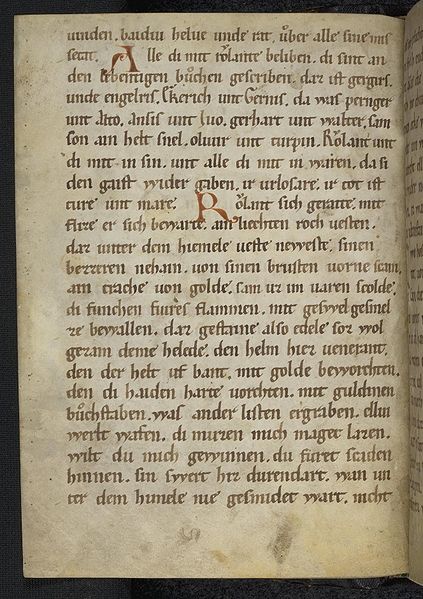 uinden. baidiu helue unde rat. uͦber alle sine mis
setat. Alle di mit rolante beliben. di sint an
den lebentigen buͦchen gescriben. dar ist gergirs.
unde engelirs. Ekerich unt Gernis. da was peringer
unt Atto. ansis unt Iuo. gerhart unt walter. sam
son ain helt snel. oliuir unt turpin. Rolant unt
di mit in sin. unt alle di mit in waren. da si
den gaist wider gaben. ir urlosare. ir tot ist
ture unt mare. Rolant sich gerate. mit
flize er sich bewarte. ain liechten roch uesten.
dar unter dem himele ueste neweste. sinen
bezeren nehain. uon sinen brusten uorne scain.
ain trache uon golde. sam ur im uaren scolde.
di funchen fuires flammen. mit gesmelze
bewallen. dar gestaine also edele sor wol
gezam deme helede. den helm hiez uenerant.
den der helt uf bant. mit golde beworchten.
den di haiden harte uorchten. mit guldinen
buͦchstaben. was ander listen ergraben. elliu
werlt wafen. di muzen mich maget lazen.
wilt du mich gewinnen. du fuͦrest scaden
hinnen. sin swert hiz durendart. wan un
ter dem himele nie gesmidet wart. nicht